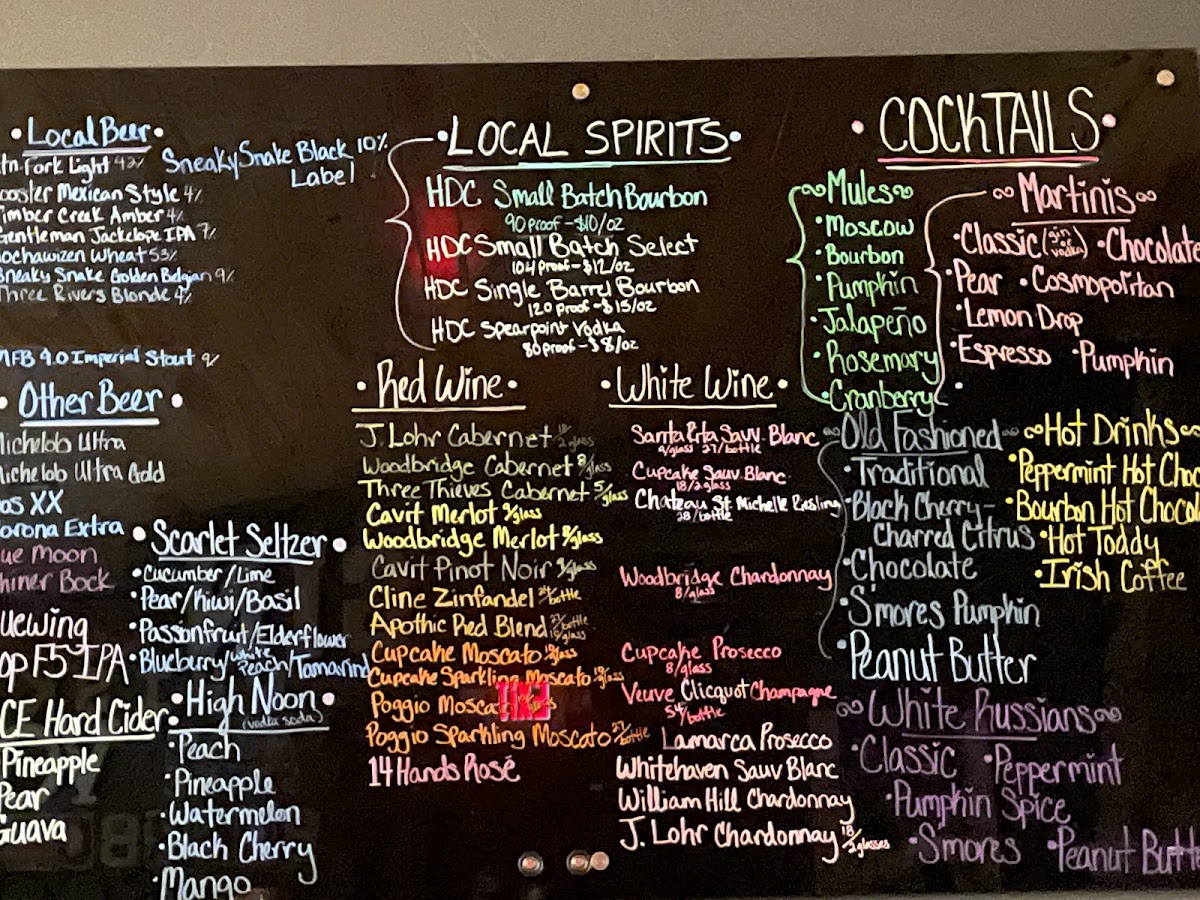 • Local Beer •
tn. Fork Light 4.2%
ooster Mexican Style 4%
imber Creek Amber 4%
Gentleman Jackelope IPA 7%
ochawizen Wheat 5.5%
Sneaky Snake Golden Belgian 9%
Three Rivers Blonde 4%
MFB 9.0 Imperial Stout 9%
Sneaky Snake Black 10%
Label
• Other Beer •
Michelob Ultra
Michelob Ultra Gold
os XX
Corona Extra
ue Moon
hiner Bock
uewing
op F5 IPA
CE Hard Cider
Pineapple
Pear
Guava
• Scarlet Seltzer •
• Cucumber/Lime
• Pear/Kiwi/Basil
• Passionfruit/Elderflower
• Blueberry/White Peach/Tamarind
• High Noon •
(vodka soda)
• Peach
• Pineapple
• Watermelon
• Black Cherry
• Mango
• LOCAL SPIRITS •
HDC Small Batch Bourbon
90 proof - $10/oz
HDC Small Batch Select
104 proof - $12/oz
HDC Single Barrel Bourbon
120 proof - $15/oz
HDC Spearpoint Vodka
80 proof - $8/oz
• Red Wine •
J. Lohr Cabernet 2 glass
Woodbridge Cabernet 8/glass
Three Thieves Cabernet 5/glass
Cavit Merlot 9/glass
Woodbridge Merlot 8/glass
Cavit Pinot Noir 9/glass
Cline Zinfandel bottle
Apothic Red Blend bottle glass
Cupcake Moscato glass
Cupcake Sparkling Moscato glass
Poggio Mosca
Poggio Sparkling Moscato 27/bottle
14 Hands Rosé
• White Wine •
Santa Rita Sauv. Blanc
9/glass 27/bottle
Cupcake Sauv. Blanc
18/2 glass
Chateau St. Michelle Riesling
28/bottle
Woodbridge Chardonnay
8/glass
Cupcake Prosecco
8/glass
Veuve Clicquot Champagne
54/bottle
Lamarca Prosecco
Whitehaven Sauv Blanc
William Hill Chardonnay
J. Lohr Chardonnay 18/2 glasses
• COCKTAILS •
Mules
• Moscow
• Bourbon
• Pumpkin
• Jalapeño
• Rosemary
• Cranberry
Martinis
• Classic (gin or vodka) • Chocolate
• Pear • Cosmopolitan
• Lemon Drop
• Espresso • Pumpkin
Old Fashioned
• Traditional
• Black Cherry -
Charred Citrus
• Chocolate
• S'mores Pumpkin
• Peanut Butter
Hot Drinks
• Peppermint Hot Choc
• Bourbon Hot Chocola
• Hot Toddy
• Irish Coffee
White Russians
• Classic • Peppermint
• Pumpkin Spice
• S'mores • Peanut Butte